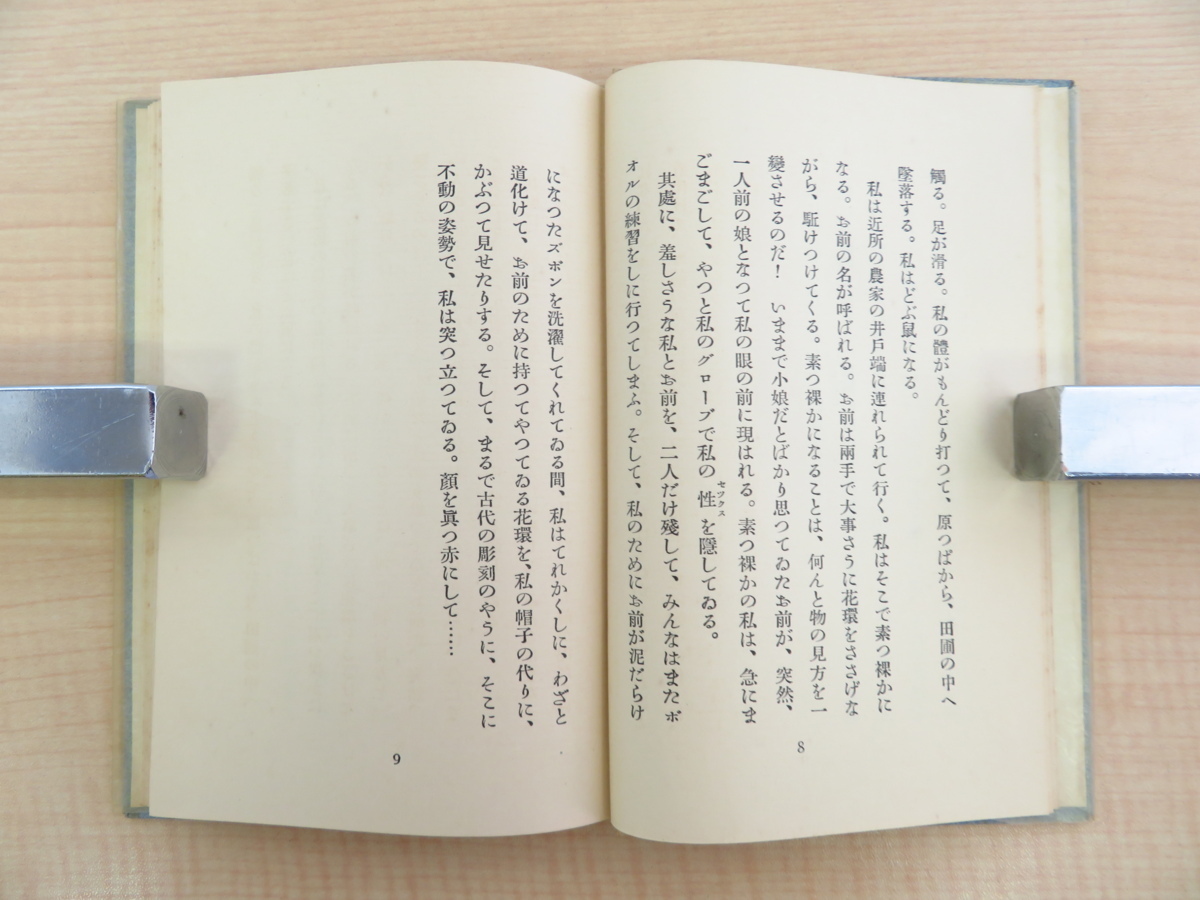 觸る。足が滑る。私の體がもんどり打つて、原つぱから、田圃の中へ
墜落する。私はどぶ鼠になる。
私は近所の農家の井戸端に連れられて行く。私はそこで素つ裸かに
なる。お前の名が呼ばれる。お前は兩手で大事さうに花環をささげな
がら、駈けつけてくる。素つ裸かになることは、何んと物の見方を一
變させるのだ！　いままで小娘だとばかり思つてゐたお前が、突然、
一人前の娘となつて私の眼の前に現はれる。素つ裸かの私は、急にま
ごまごして、やつと私のグローブで私の性を隱してゐる。
セックス
其處に、羞しさうな私とお前を、二人だけ殘して、みんなはまたボ
オルの練習をしに行つてしまふ。そして、私のためにお前が泥だらけ
8
になつたズボンを洗濯してくれてゐる間、私はてれかくしに、わざと
道化けて、お前のために持つてやつてゐる花環を、私の帽子の代りに、
かぶつて見せたりする。そして、まるで古代の彫刻のやうに、そこに
不動の姿勢で、私は突つ立つてゐる。顏を眞つ赤にして……
9